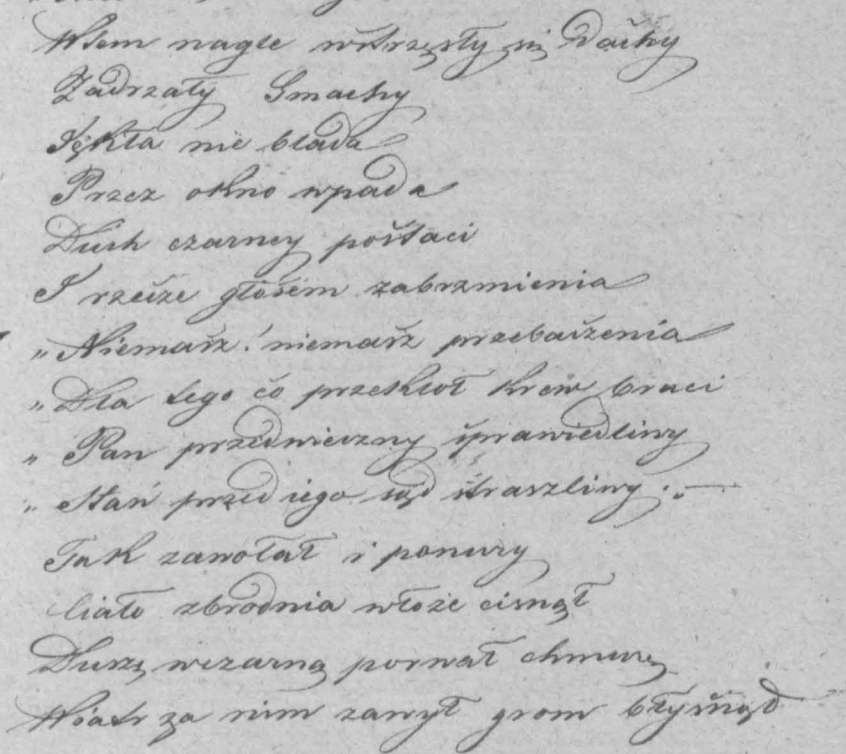 Wtem nagle wstrzęsły się Dachy
Zadrzały Gmachy
Jękła nie blada
Przez okno wpada
Duch czarney postaci
I rzecze głosem zabrzmienia
„Niemasz! niemasz przebaczenia
„Dla tego co przeklął krew braci
„Pan przedwieczny sprawiedliwy
„Stań przed iego sąd straszliwy.„—
Tak zawołał i ponury
Ciało zbrodnia włoże cisnął
Duszę wczarną porwał chmurę
Wiatr za nim zawył grom błysnął